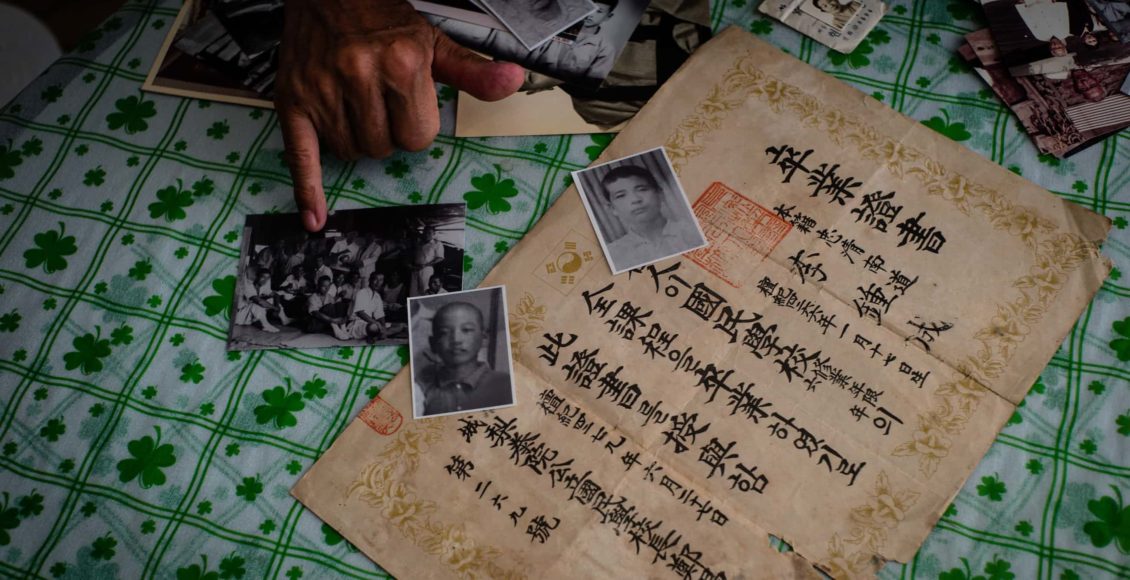 卒業證書
本籍忠清南道
李鍾
檀紀四二六六年一月十七日生
이國民學校六修業年限의
全課程을卒業하였기로
此證書를授與함
檀紀四二七九年六月二七日
城梨泰院公立國民學校長鄭
第二六九號